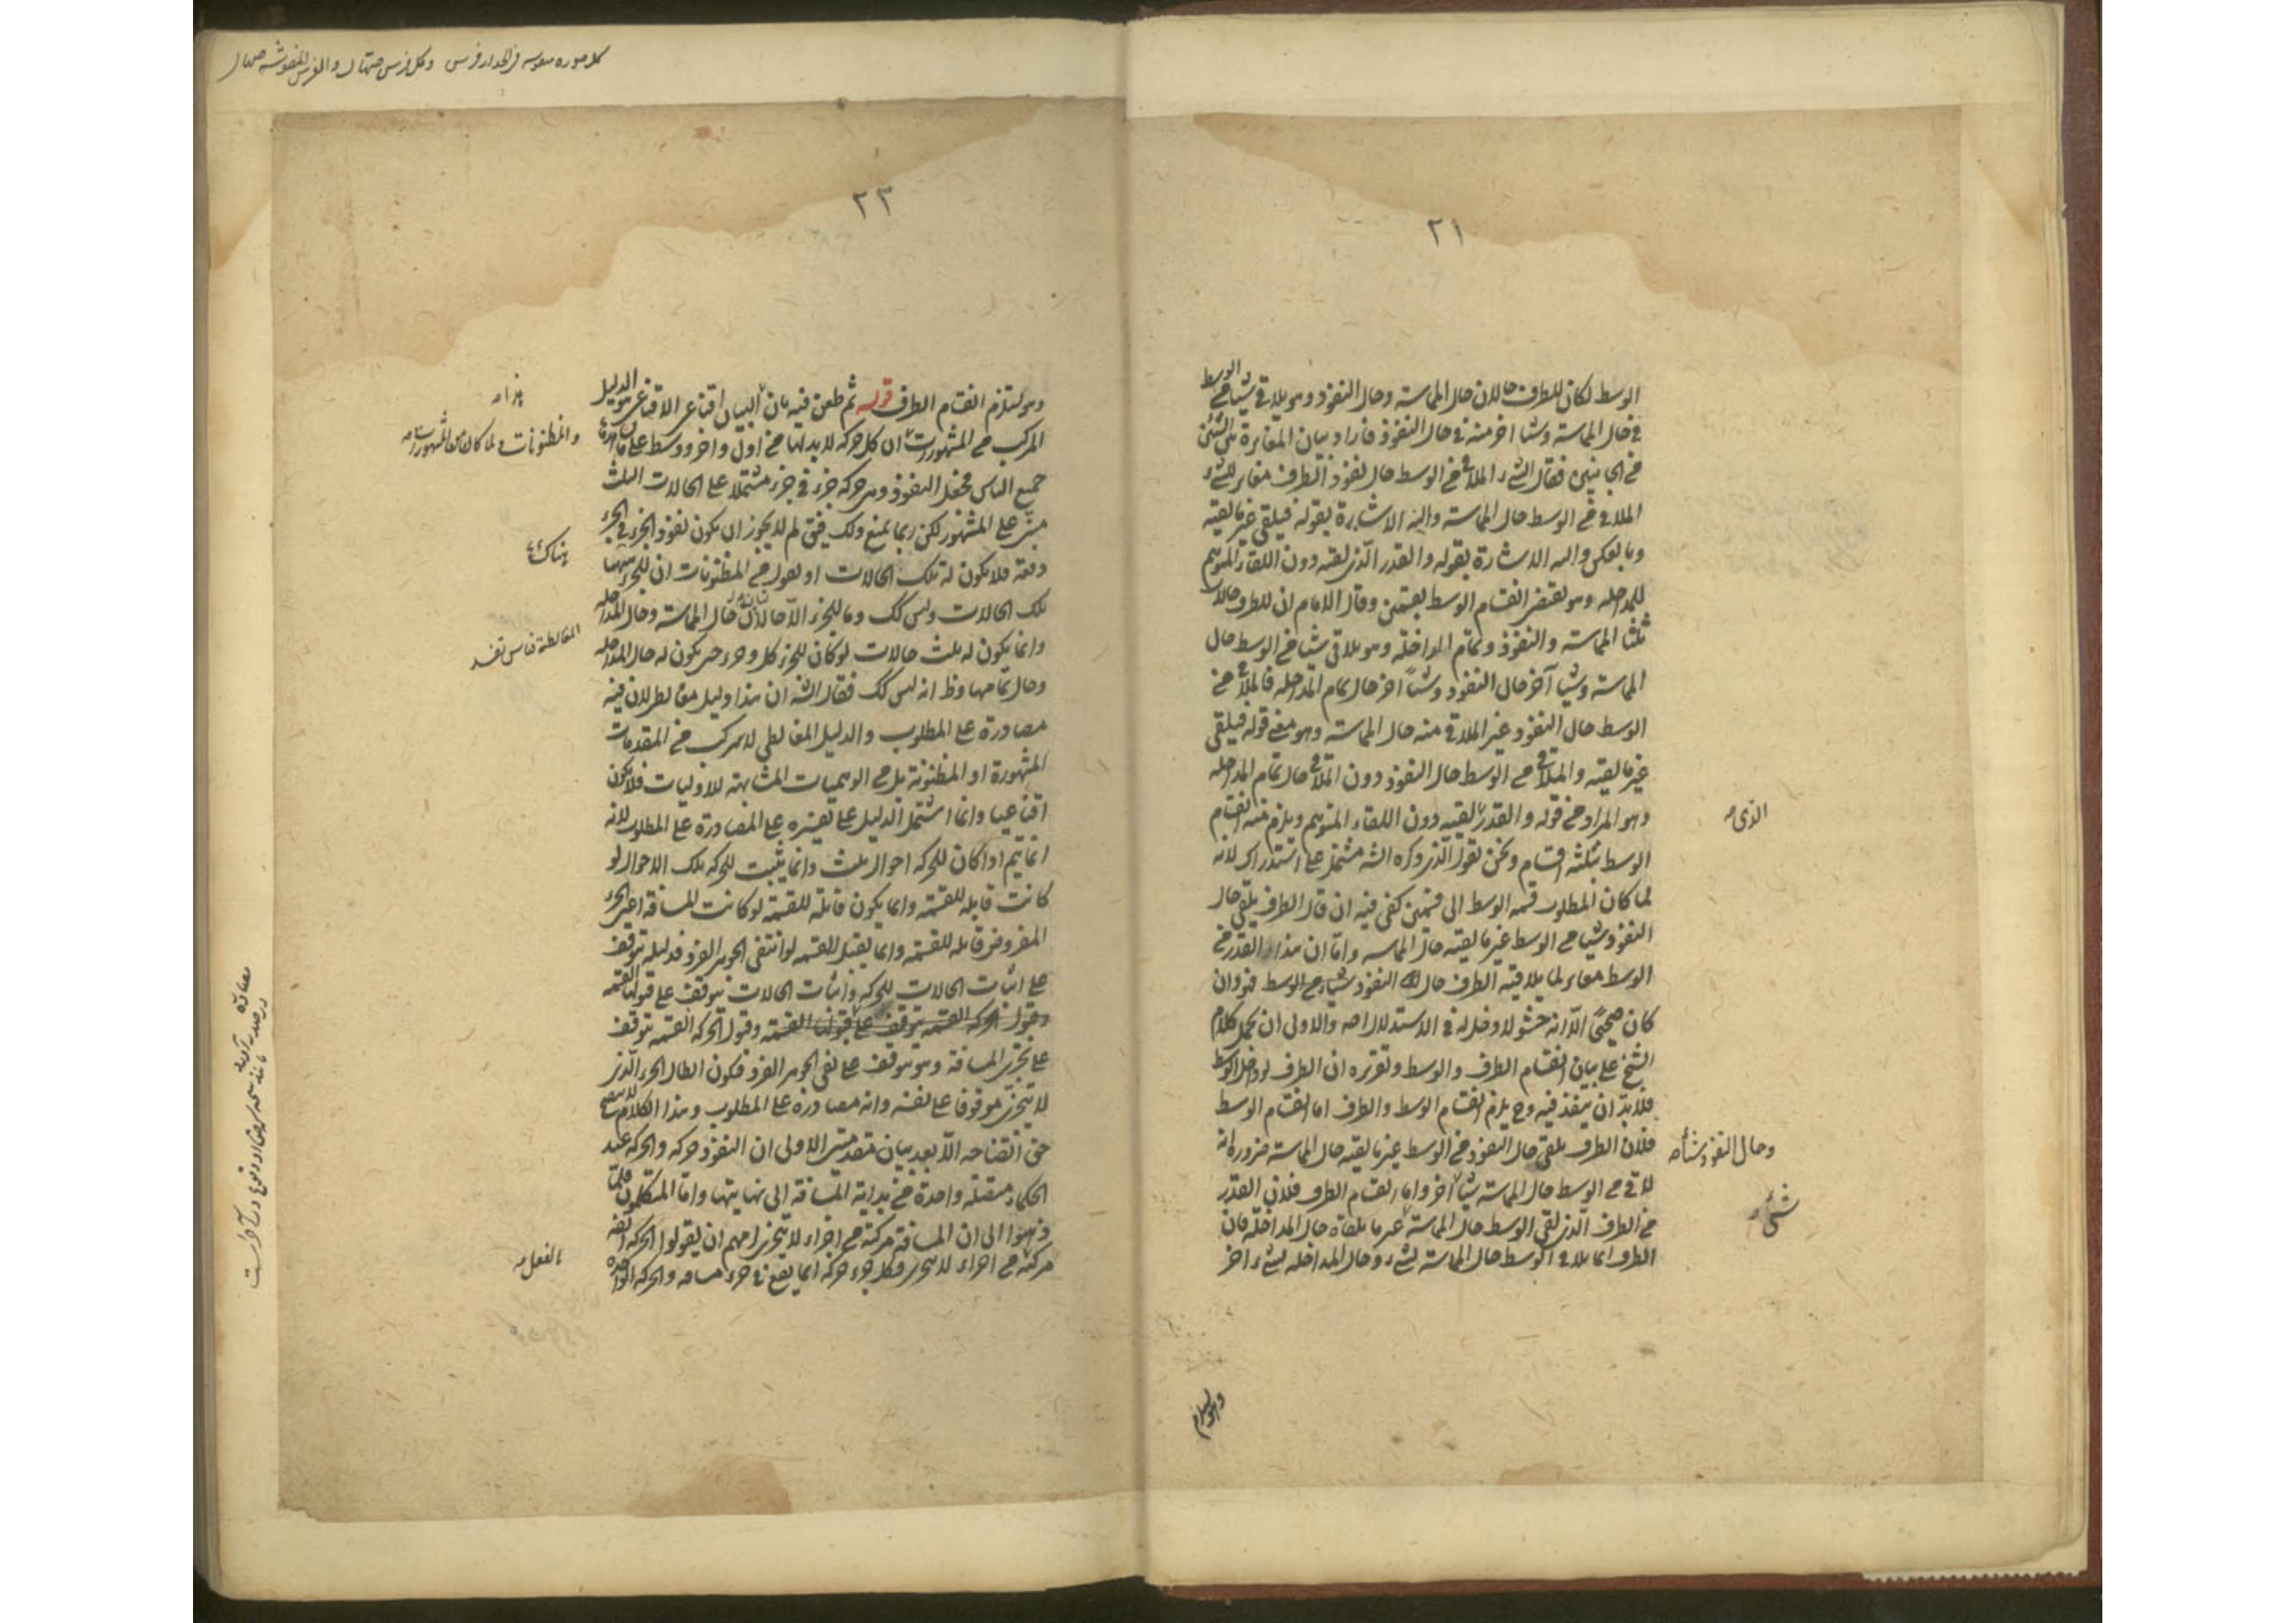 ٢١
الوسط لكان للطرف حالان حال المماسة وحال النفوذ وهو يلاقى شيئا من الوسط
فى حال المماسة وشيئا اخر منه فى حال النفوذ فاراد بيان المغايرة بين الشيئين
من الجانبين فقال الشىء الملاقى من الوسط حال نفوذ الطرف مغاير للشىء
الملاقى من الوسط حال المماسة واليه الاشارة بقوله فيلقى غير ما لقيه
وبالعكس واليه الاشارة بقوله والقدر الذى لقيه دون اللقاء المتوهم
للمداخلة وهو يقتضى انقسام الوسط بقسمين وقال الامام ان للطرف حالات
ثلثا المماسة والنفوذ وتمام المداخلة وهو يلاقى شيئا من الوسط حال
المماسة وشيئا آخر حال النفوذ وشيئاً اخر حال تمام المداخلة فالملاقى من
الوسط حال النفوذ غير الملاقى منه حال المماسة وهو معنى قوله فيلقى
غير ما لقيه والملاقى من الوسط حال النفوذ دون الملاقى حال تمام المداخلة
وهو المراد من قوله والقدر لقيه دون اللقاء المتوهم ويلزم منه انقسام
الذى صه
الوسط بثلثة اقسام ونحن نقول الذى ذكره الشه مشتمل على استدراك لانه
لما كان المطلوب قسمة الوسط الى قسمين كفى فيه ان قال الطرف يلقى حال
النفوذ شيئا من الوسط غير ما لقيه حال المماسه واما ان هذا القدر من
الوسط مغاير لما يلاقيه الطرف حال النفوذ شيئا من الوسط فهو وان
كان صحيحاً الا انه حشو لا دخل له فى الاستدلال اصه والاولى ان يحمل كلام
الشيخ على بيان انقسام الطرف والوسط وتقريره ان الطرف لو داخل الوسط
فلا بد ان ينفذ فيه وح يلزم انقسام الوسط والطرف اما انقسام الوسط
فلان الطرف يلقى حال النفوذ من الوسط غير ما لقيه حال المماسة ضرورة انه
وحال النفوذ شيأ صه
لاقى من الوسط حال المماسة شيئا آخر واما انقسام الطرف فلان القدر
من الطرف الذى لقى الوسط حال المماسة غير ما يلقاه حال المداخلة فان
الطرف انما يلاقى الوسط حال المماسة بشىء وحال المداخلة بشىء اخر
٢٣
وهو يستلزم انقسام الطرف قوله ثم طعن فيه بان البيان اقناعى الاقناعى هو الدليل
هذا صه
المركب من المشهورات ان كل حركة لا بد لها من اول واخر ووسط على ما
والمظنونات ولما كان من المشهورات صه
جميع الناس فجعل النفوذ وهى حركة جزء فى جزء مشتملا على الحالات الثلث
مبنى على المشهور لكن ربما يمنع ذلك فيق لم لا يجوز ان يكون نفوذ الجزء فى الجزء
دفعة فلا يكون له تلك الحالات او نقول من المظنونات ان للجزء
هناك
تلك الحالات وليس كك وما للجزء الا حالان حال المماسة وحال المداخلة
وانما يكون له ثلث حالات لو كان للجزء كل وجزء حتى يكون له حال المداخلة
وحال تمامها وظ انه ليس كك فقال الشه ان هذا دليل مغالطى لان فيه
مصادرة على المطلوب والدليل المغالطى لا يتركب من المقدمات
المشهورة او المظنونة بل من الوهميات المشابهة للاوليات فلا يكون
اقناعيا وانما اشتمل الدليل على تفسيره على المصادرة على المطلوب لانه
انما يتم اذا كان للحركة احوال ثلث وانما يثبت للحركة تلك الاحوال لو
كانت قابلة للقسمة وانما يكون قابلة للقسمة لو كانت المسافة اعنى الجزء
المفروض قابلة للقسمة وانما يقبل القسمة لو انتفى الجوهر الفرد فدليله يتوقف
على اثبات الحالات للحركة واثبات الحالات يتوقف على قبولها القسمة
وقبول الحركة القسمة يتوقف على قبولها القسمة وقبول الحركة القسمة يتوقف
على تجزى المسافة وهو موقوف على نفى الجوهر الفرد فيكون ابطال الجزء الذى
لا يتجزى موقوفا على نفسه وانه مصادرة على المطلوب وهذا الكلام لا يتضح
حق اتضاحه الا بعد بيان مقدمتين الاولى ان النفوذ حركة والحركة عند
الحكماء متصلة واحدة من بداية المسافة الى نهايتها واما المتكلمون فلما
ذهبوا الى ان المسافة مركبة من اجزاء لا يتجزى لزمهم ان يقولوا الحركة ايضه
بالفعل صه
مركبة من اجزاء لا يتجزى وكل جزء حركة انما يقع فى جزء مسافة والحركة الواحدة